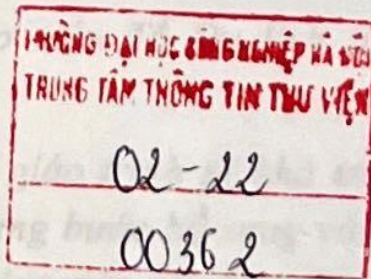 TRƯỜNG ĐẠI HỌC CÔNG NGHIỆP HÀ NỘI
TRUNG TÂM THÔNG TIN THƯ VIỆN
02-22
00362